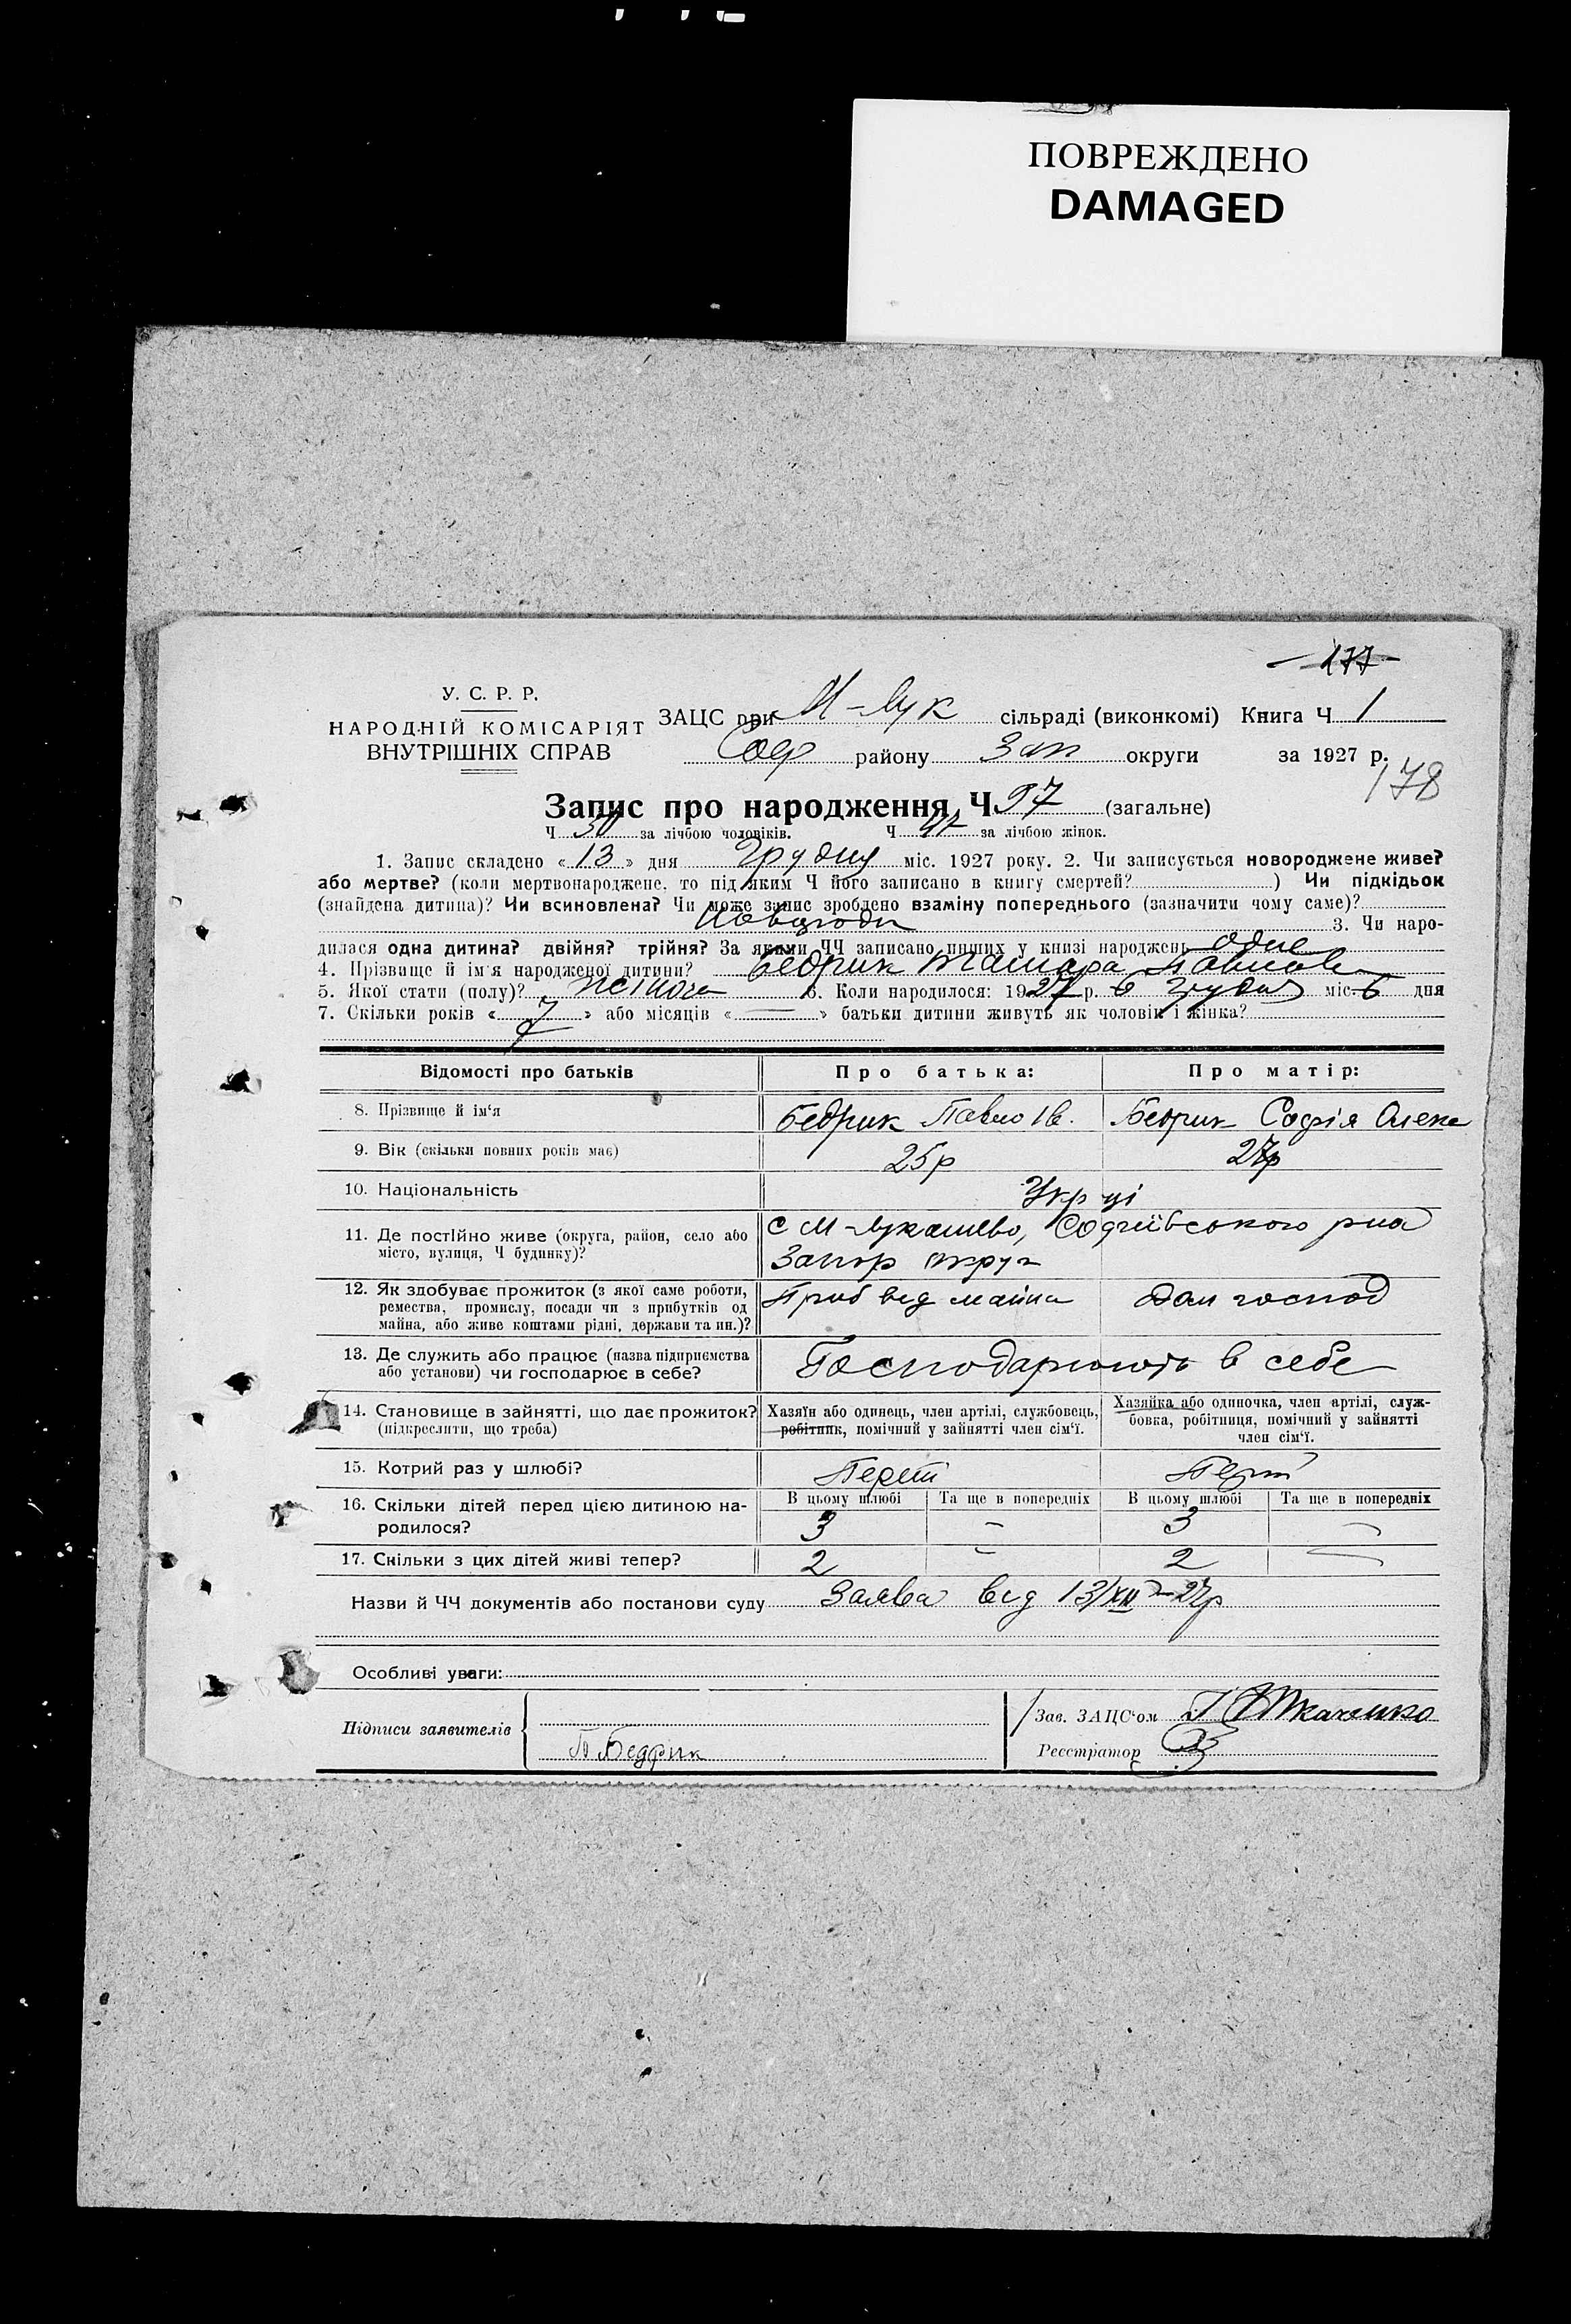 ПОВРЕЖДЕНО
DAMAGED
177
У. С. Р. Р.
НАРОДНІЙ КОМІСАРІЯТ
ВНУТРІШНІХ СПРАВ
ЗАЦС при М-Лук сільраді (виконкомі) Книга Ч 1
Соф району Зап округи за 1927 р.
178
Запис про народження Ч 97 (загальне)
Ч 50 за лічбою чоловіків. Ч 47 за лічбою жінок.
1. Запис складено «13» дня Грудня міс. 1927 року. 2. Чи записується новороджене живе?
або мертве? (коли мертвонароджене, то під яким Ч його записано в книгу смертей? ) Чи підкідьок
(знайдена дитина)? Чи всиновлена? Чи може запис зроблено взаміну попереднього (зазначити чому саме)?
3. Чи наро-
дилася одна дитина? двійня? трійня? За якими ЧЧ записано инших у книзі народжень одне
4. Прізвище й ім'я народженої дитини? Бедрик Тамара Павлов
5. Якої статі (полу)? жіноча 6. Коли народилося: 1927 р. 6 грудня міс. 6 дня
7. Скільки років «7» або місяців «—» батьки дитини живуть як чоловік і жінка?
Відомості про батьків Про батька: Про матір:
8. Прізвище й ім'я Бедрик Павло Ів. Бедрик Софія Олекс
9. Вік (скільки повних років має) 25р 27р
10. Національність Укр-ці
11. Де постійно живе (округа, район, село або
місто, вулиця, Ч будинку)?
с М-Лукашево, Софіївського р-на
Запор округи
12. Як здобуває прожиток (з якої саме роботи,
ремества, промислу, посади чи з прибутків од
майна, або живе коштами рідні, держави та ин.)?
Приб від майна Дом господ
13. Де служить або працює (назва підприємства
або установи) чи господарює в себе?
Господарюють в себе
14. Становище в зайнятті, що дає прожиток?
(підкреслити, що треба)
Хазяїн або одинець, член артілі, службовець,
робітник, помічний у зайнятті член сім'ї.
Хазяйка або одиночка, член артілі, служ-
бовка, робітниця, помічний у зайнятті
член сім'ї.
15. Котрий раз у шлюбі? Перший Перш
16. Скільки дітей перед цією дитиною на-
родилося?
В цьому шлюбі Та ще в попередніх В цьому шлюбі Та ще в попередніх
3 — 3 —
17. Скільки з цих дітей живі тепер? 2 — 2 —
Назви й ЧЧ документів або постанови суду Заява від 13/XII-27р
Особливі уваги:
Підписи заявителів
П Бедрик
Зав. ЗАЦС'ом Ткаченко
Реєстратор